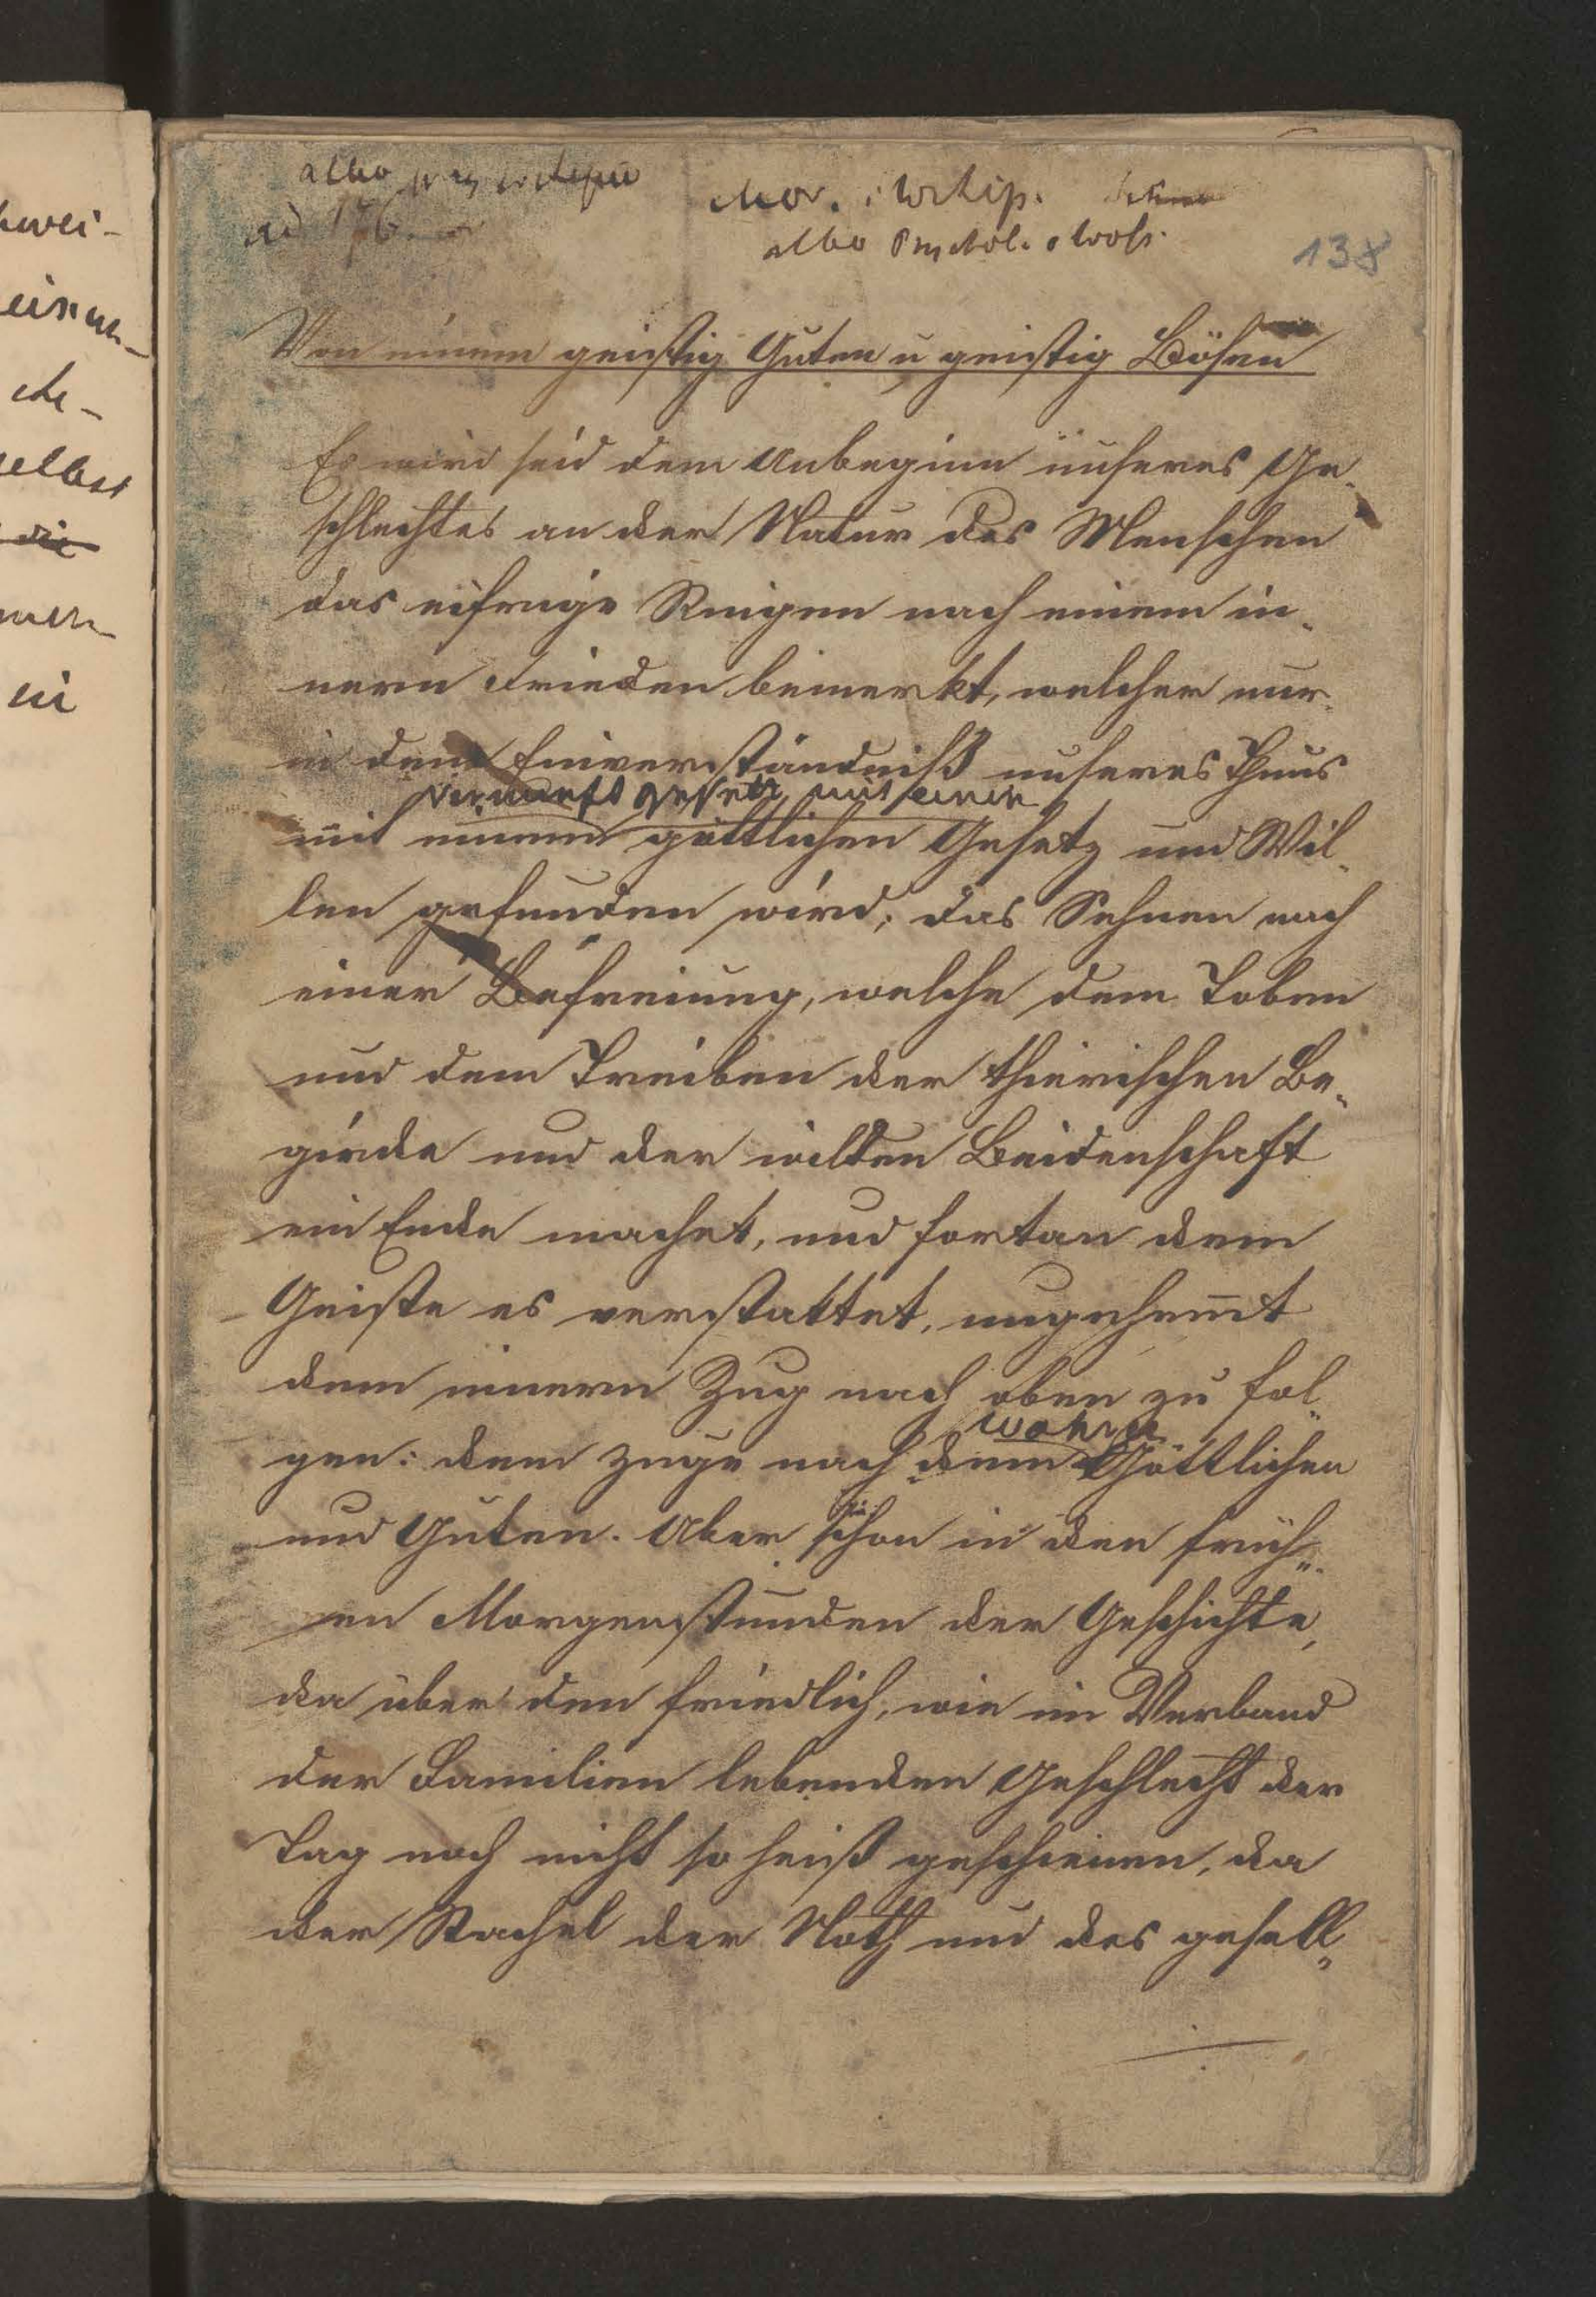 zwei-
eisen-
che-
selbst
die
in
albo przy wstępie
ad 176
Mor. i Wstęp.
albo Psychol.
138
Von einem geistig Guten u geistig Bösen
Es wird seid dem Anbeginn unseres Ge-
schlechtes an der Natur des Menschen
das eifrige Ringen nach einem in-
nern Frieden bemerkt, welcher nur
in dem Einverständniß unseres Thuns
Vernunftgesetz mit einem
mit einem göttlichen Gesetz und Wil-
len gefunden wird; das Sehnen nach
einer Befreiung, welche dem Toben
und dem Treiben der thierischen Be-
girde und der wilden Leidenschaft
ein Ende machet, und fortan dem
Geiste es verstattet, ungehemt
dem innern Zug nach oben zu fol-
wahren
gen: dem Zuge nach dem Göttlichen
und Guten. Aber schon in den früh-
en Morgenstunden der Geschichte,
da über den friedlich, wie im Verband
der Familien lebenden Geschlecht der
Tag noch nicht so heiß geschienen, da
der Stachel der Noth und des gesell-